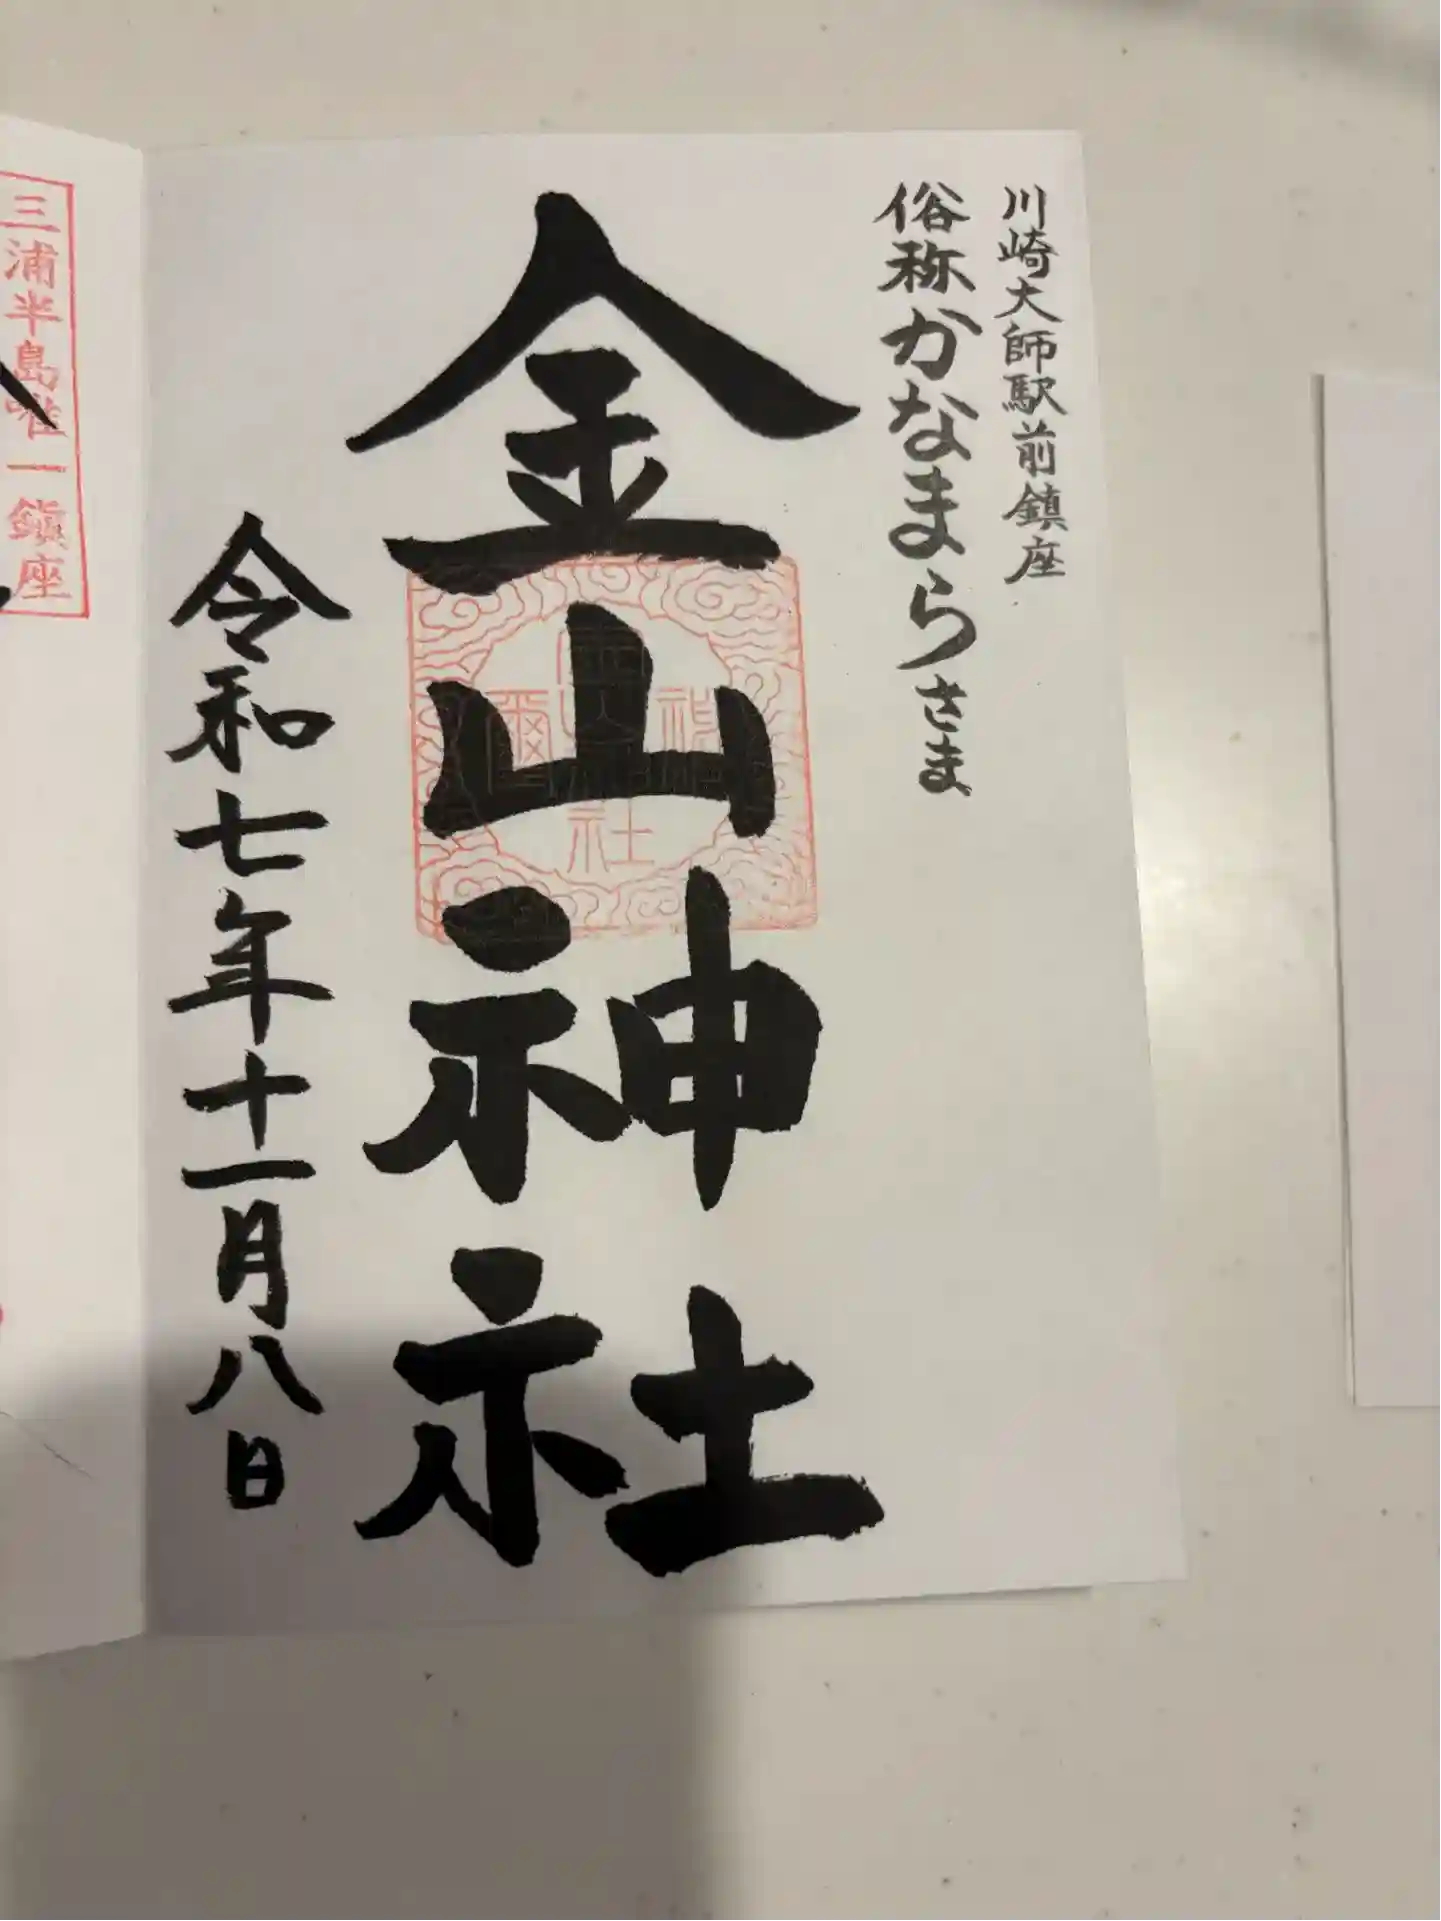 川崎大師駅前鎮座
俗称かなまらさま
金山神社
令和七年十一月八日
三浦半島唯一鎮座